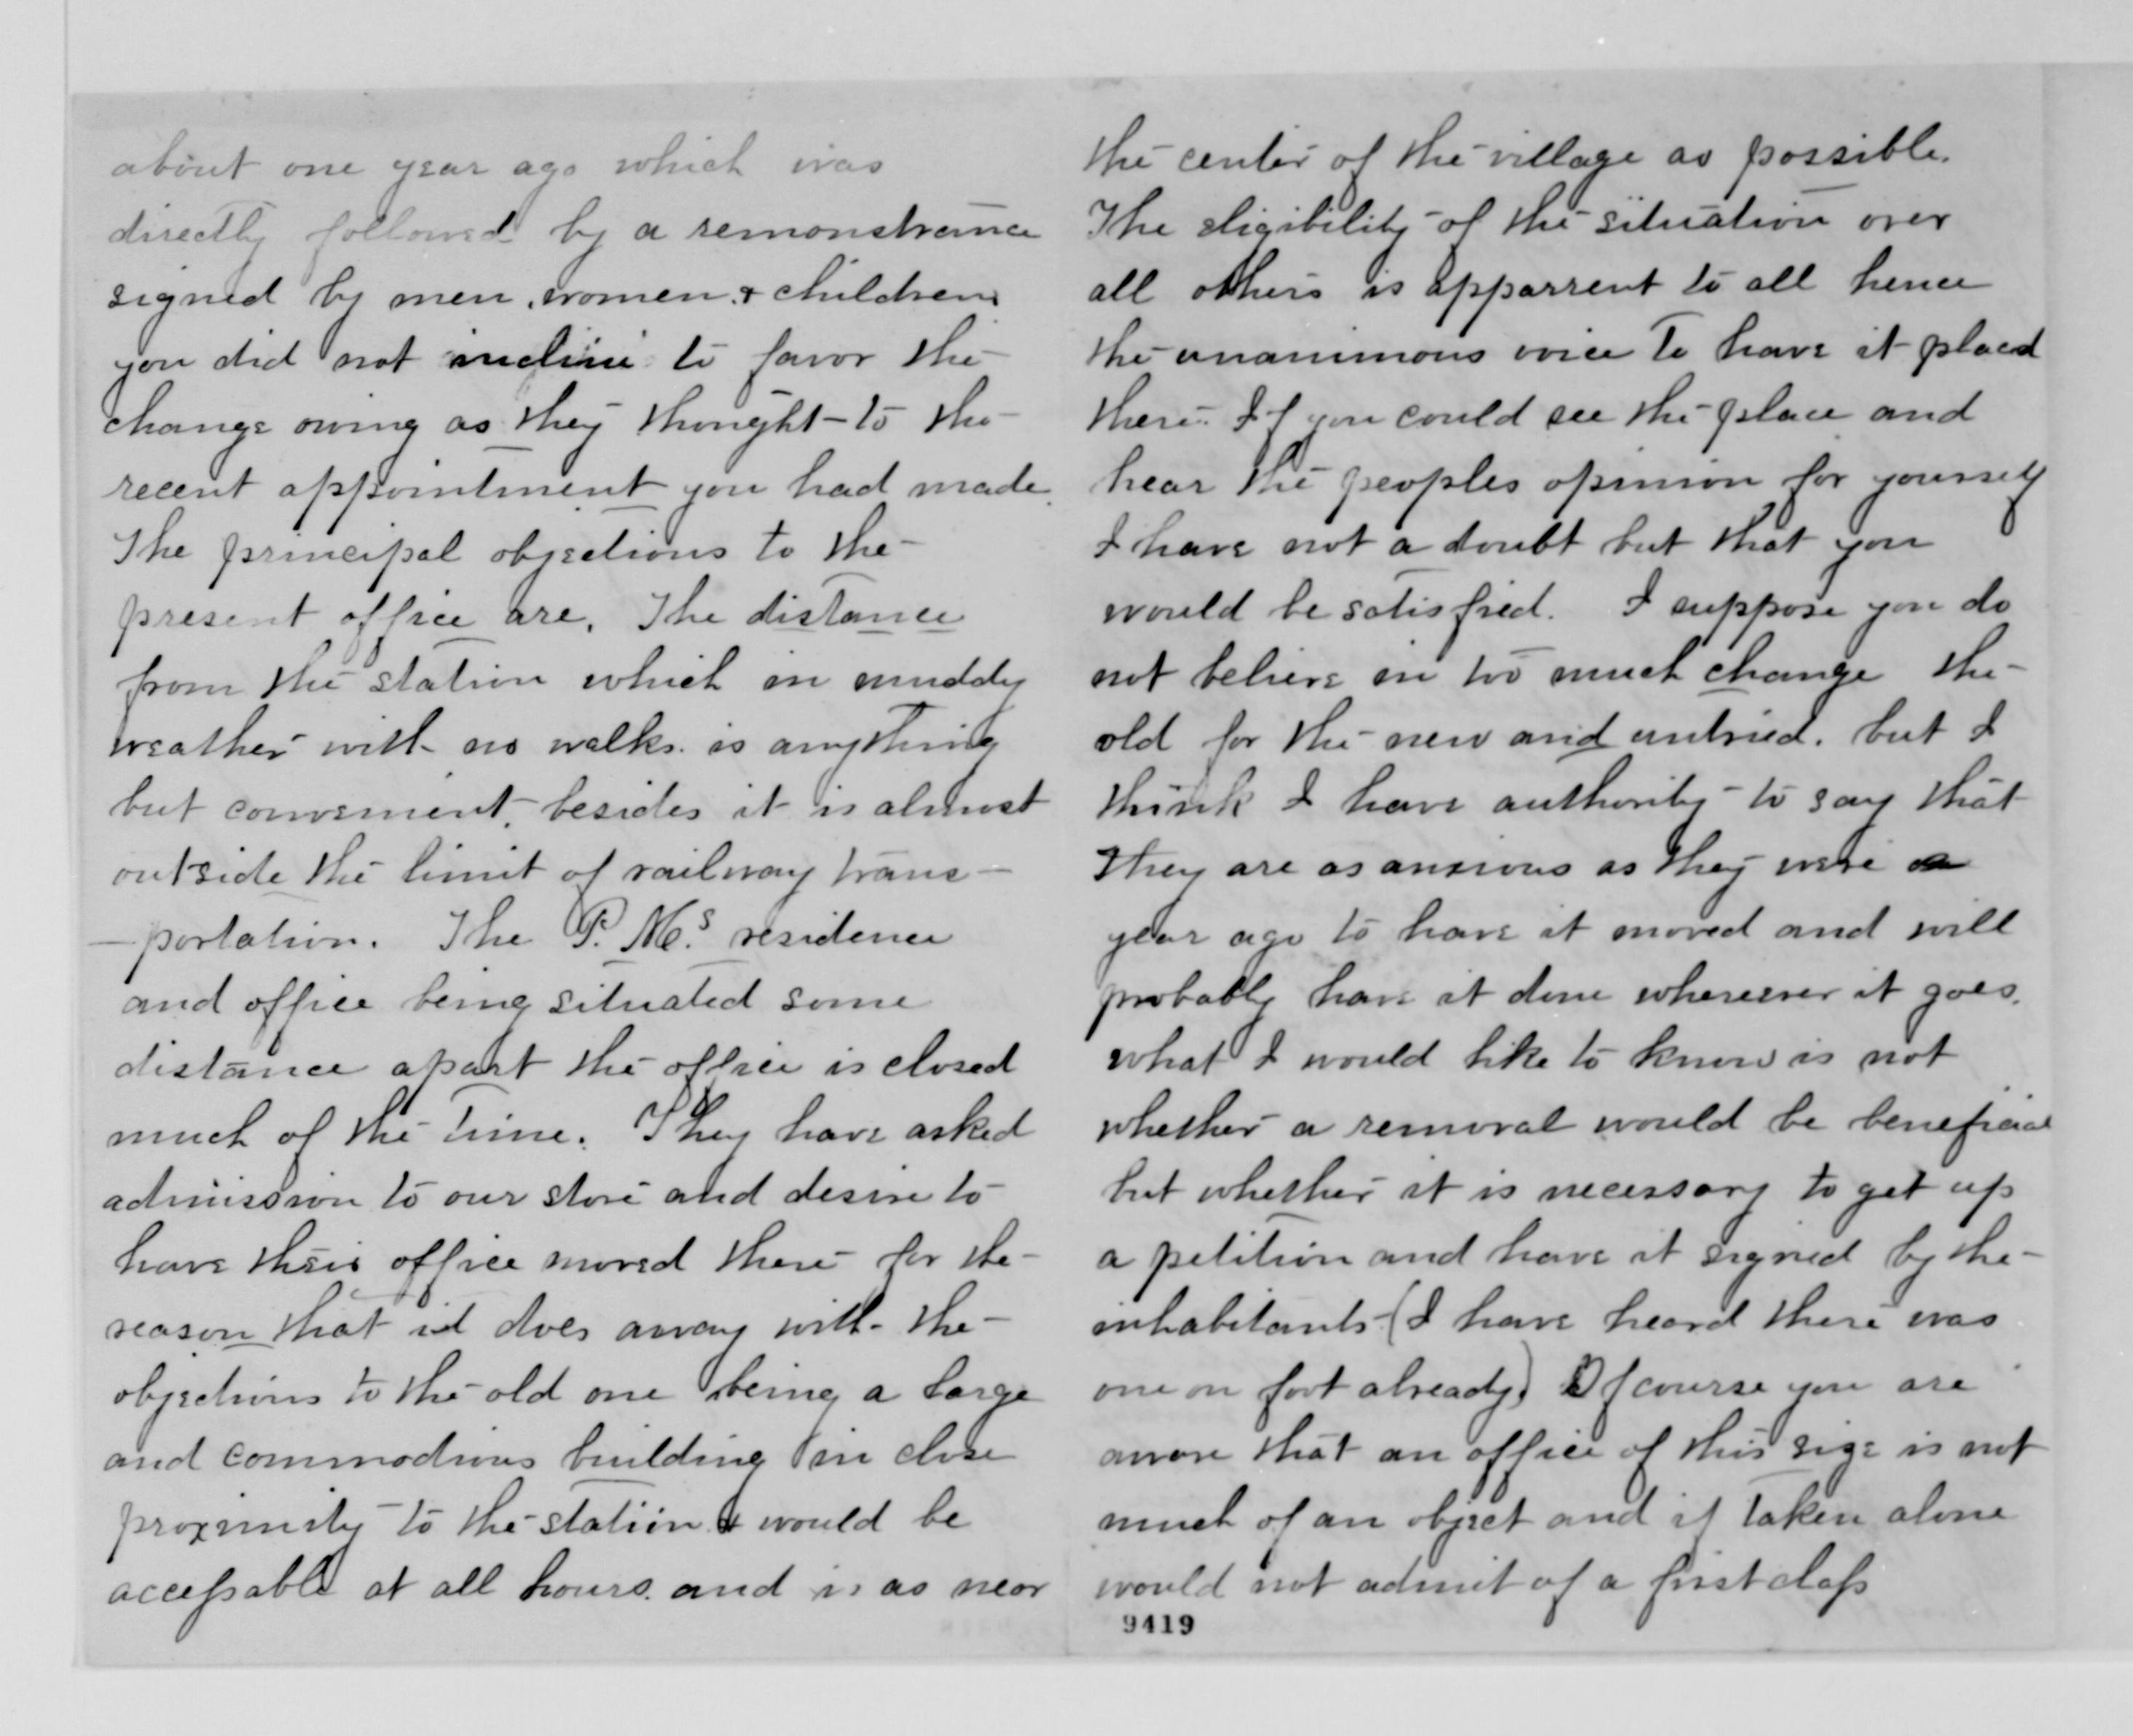 about one year ago which was
directly followed by a remonstrance
signed by men, women & children
you did not incline to favor the
change owing as they thought to the
recent appointment you had made.
The principal objections to the
present office are, The distance
from the station which in muddy
weather with no walks is anything
but convenient, besides it is almost
outside the limit of railway trans-
-portation. The P. M.s residence
and office being situated some
distance apart the office is closed
much of the time. They have asked
admission to our store and desire to
have their office moved there for the
reason that it does away with the
objections to the old one being a large
and commodious building in close
proximity to the station & would be
accessable at all hours. and is as near
the center of the village as possible.
The eligibility of the situation over
all others is apparrent to all hence
the unanimous voice to have it placed
there. If you could see the place and
hear the peoples opinion for yourself
I have not a doubt but that you
would be satisfied. I suppose you do
not believe in too much change the
old for the new and untried. but I
think I have authority to say that
they are as anxious as they were a
year ago to have it moved and will
probably have it done wherever it goes.
what I would like to know is not
whether a removal would be beneficial
but whether it is necessary to get up
a petition and have it signed by the
inhabitants (I have heard there was
one on foot already) Of course you are
aware that an office of this size is not
much of an object and if taken alone
would not admit of a first class
9419